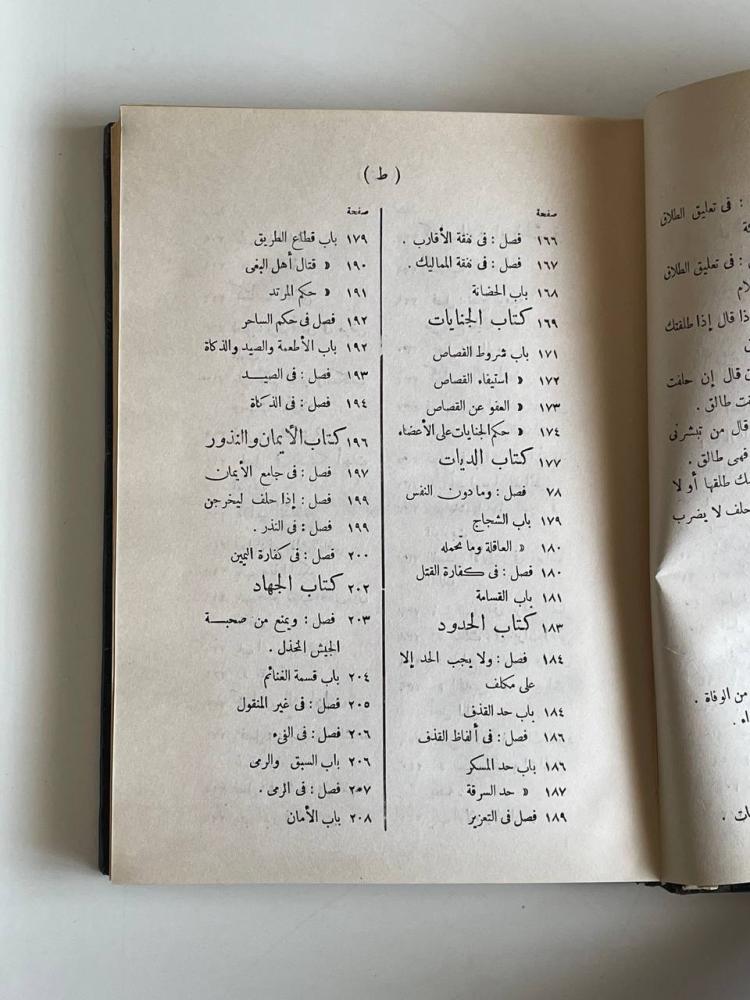 ( ط )
صفحة
١٦٦ فصل : فى نفقة الأقارب .
١٦٧ فصل : فى نفقة المماليك .
١٦٨ باب الحضانة
١٦٩ كتاب الجنايات
١٧١ باب شروط القصاص
١٧٢ « استيفاء القصاص
١٧٣ « العفو عن القصاص
١٧٤ « حكم الجنايات على الأعضاء
١٧٧ كتاب الديات
٧٨ فصل : وما دون النفس
١٧٩ باب الشجاج
١٨٠ « العاقلة وما تحمله
١٨٠ فصل : فى كفارة القتل
١٨١ باب القسامة
١٨٣ كتاب الحدود
١٨٤ فصل : ولا يجب الحد إلا
على مكلف
١٨٤ باب حد القذف
١٨٦ فصل : فى ألفاظ القذف
١٨٦ باب حد المسكر
١٨٧ « حد السرقة
١٨٩ فصل فى التعزير
صفحة
١٧٩ باب قطاع الطريق
١٩٠ « قتال أهل البغى
١٩١ « حكم المرتد
١٩٢ فصل فى حكم الساحر
١٩٢ باب الأطعمة والصيد والذكاة
١٩٣ فصل : فى الصيــد
١٩٤ فصل : فى الذكاة
١٩٦ كتاب الأيمان والنذور
١٩٧ فصل : فى جامع الأيمان
١٩٩ فصل : إذا حلف ليخرجن
١٩٩ فصل : فى النذر .
٢٠٠ فصل : فى كفارة اليمين
٢٠٢ كتاب الجهاد
٢٠٣ فصل : ويمنع من صحبــة
الجيش المخذل .
٢٠٤ باب قسمة الغنائم
٢٠٥ فصل : فى غير المنقول
٢٠٦ فصل : فى الفىء
٢٠٦ باب السبق والرمى
٢٠٧ فصل : فى الرمى .
٢٠٨ باب الأمان
: فى تعليق الطلاق
: فى تعليق الطلاق
ذا قال إذا طلقتك
قال إن حلفت
طالق .
قال من تبشرنى
فهى طالق .
طلقها أو لا
حلف لا يضرب
من الوفاة .